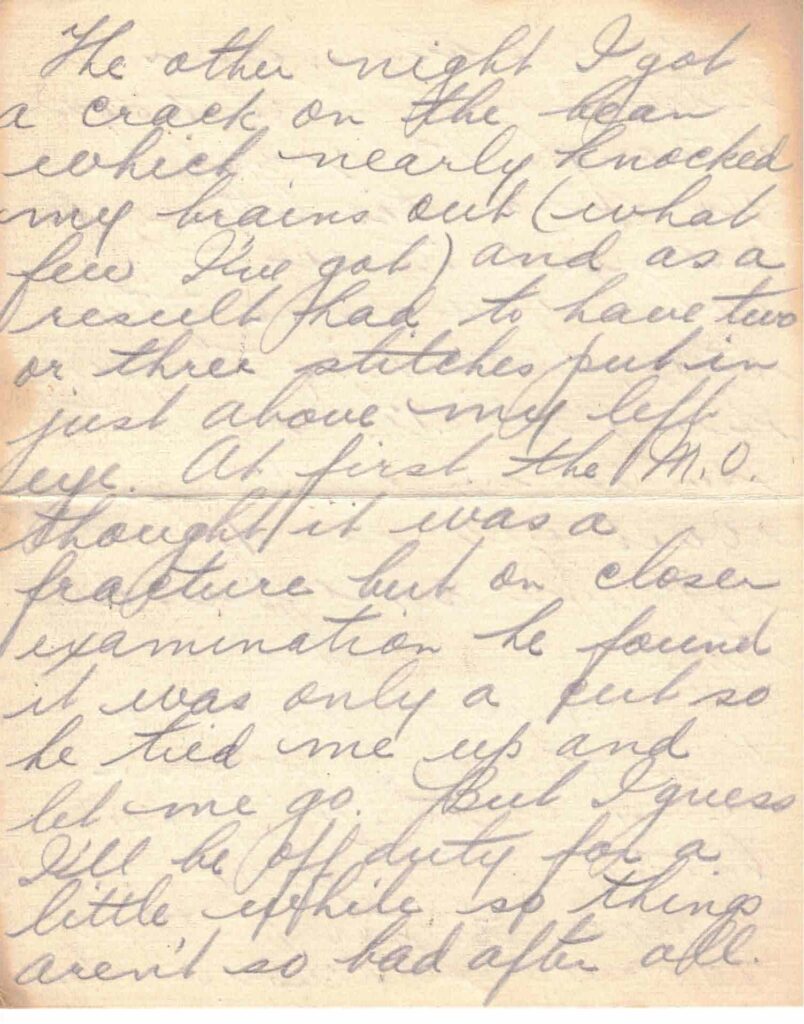 The other night I got
a crack on the bean
which nearly knocked
my brains out (what
few I've got) and as a
result had to have two
or three stitches put in
just above my left
eye. At first the M.O.
thought it was a
fracture but on closer
examination he found
it was only a cut so
he tied me up and
let me go. But I guess
I'll be off duty for a
little while so things
aren't so bad after all.